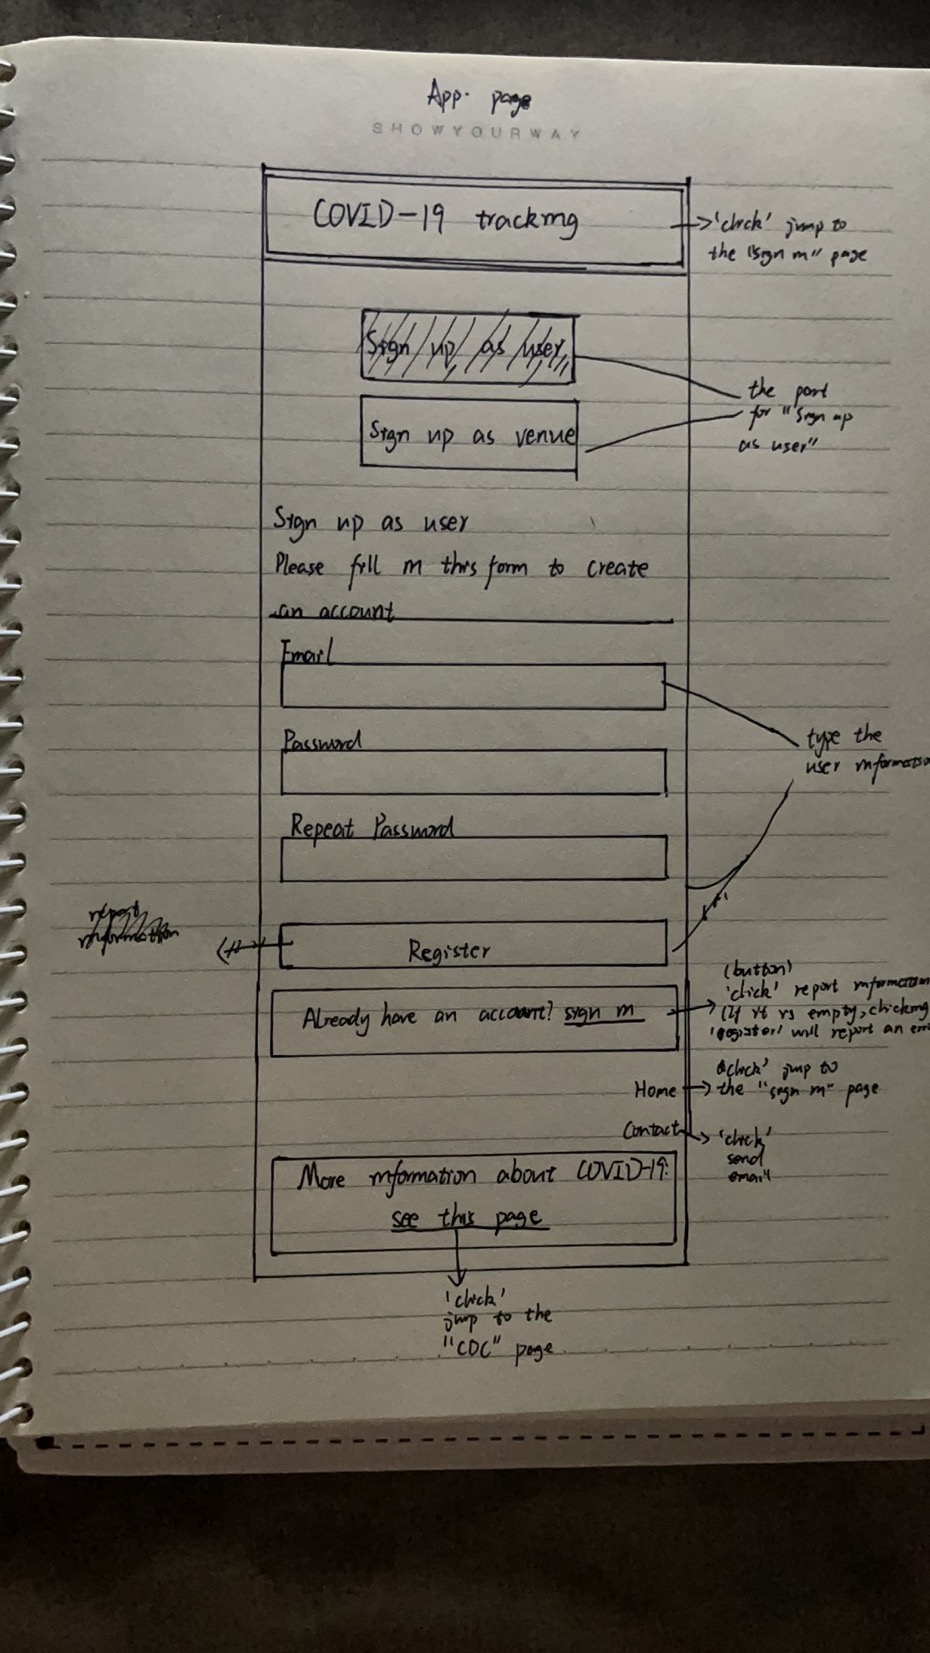 App. page
SHOWYOURWAY
COVID-19 tracking
'click' jump to
the "sign in" page
Sign up as user
Sign up as venue
the part
for "sign up
as user"
Sign up as user
Please fill in this form to create
an account
Email
Password
type the
user informatio
Repeat Password
report
information
Register
(button)
'click' report information
(If it is empty, clicking
'register' will report an err
Already have an account? sign in
Home
'click' jump to
the "sign in" page
Contact
'click'
send
email
More information about COVID-19:
see this page
'click'
jump to the
"CDC" page